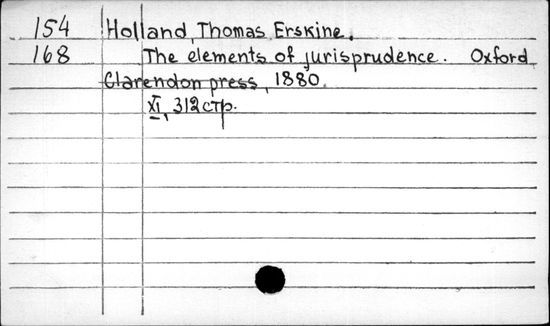 154 Holland, Thomas Erskine.
168 The elements of jurisprudence. Oxford
Clarendon press, 1880.
XI, 312 стр.